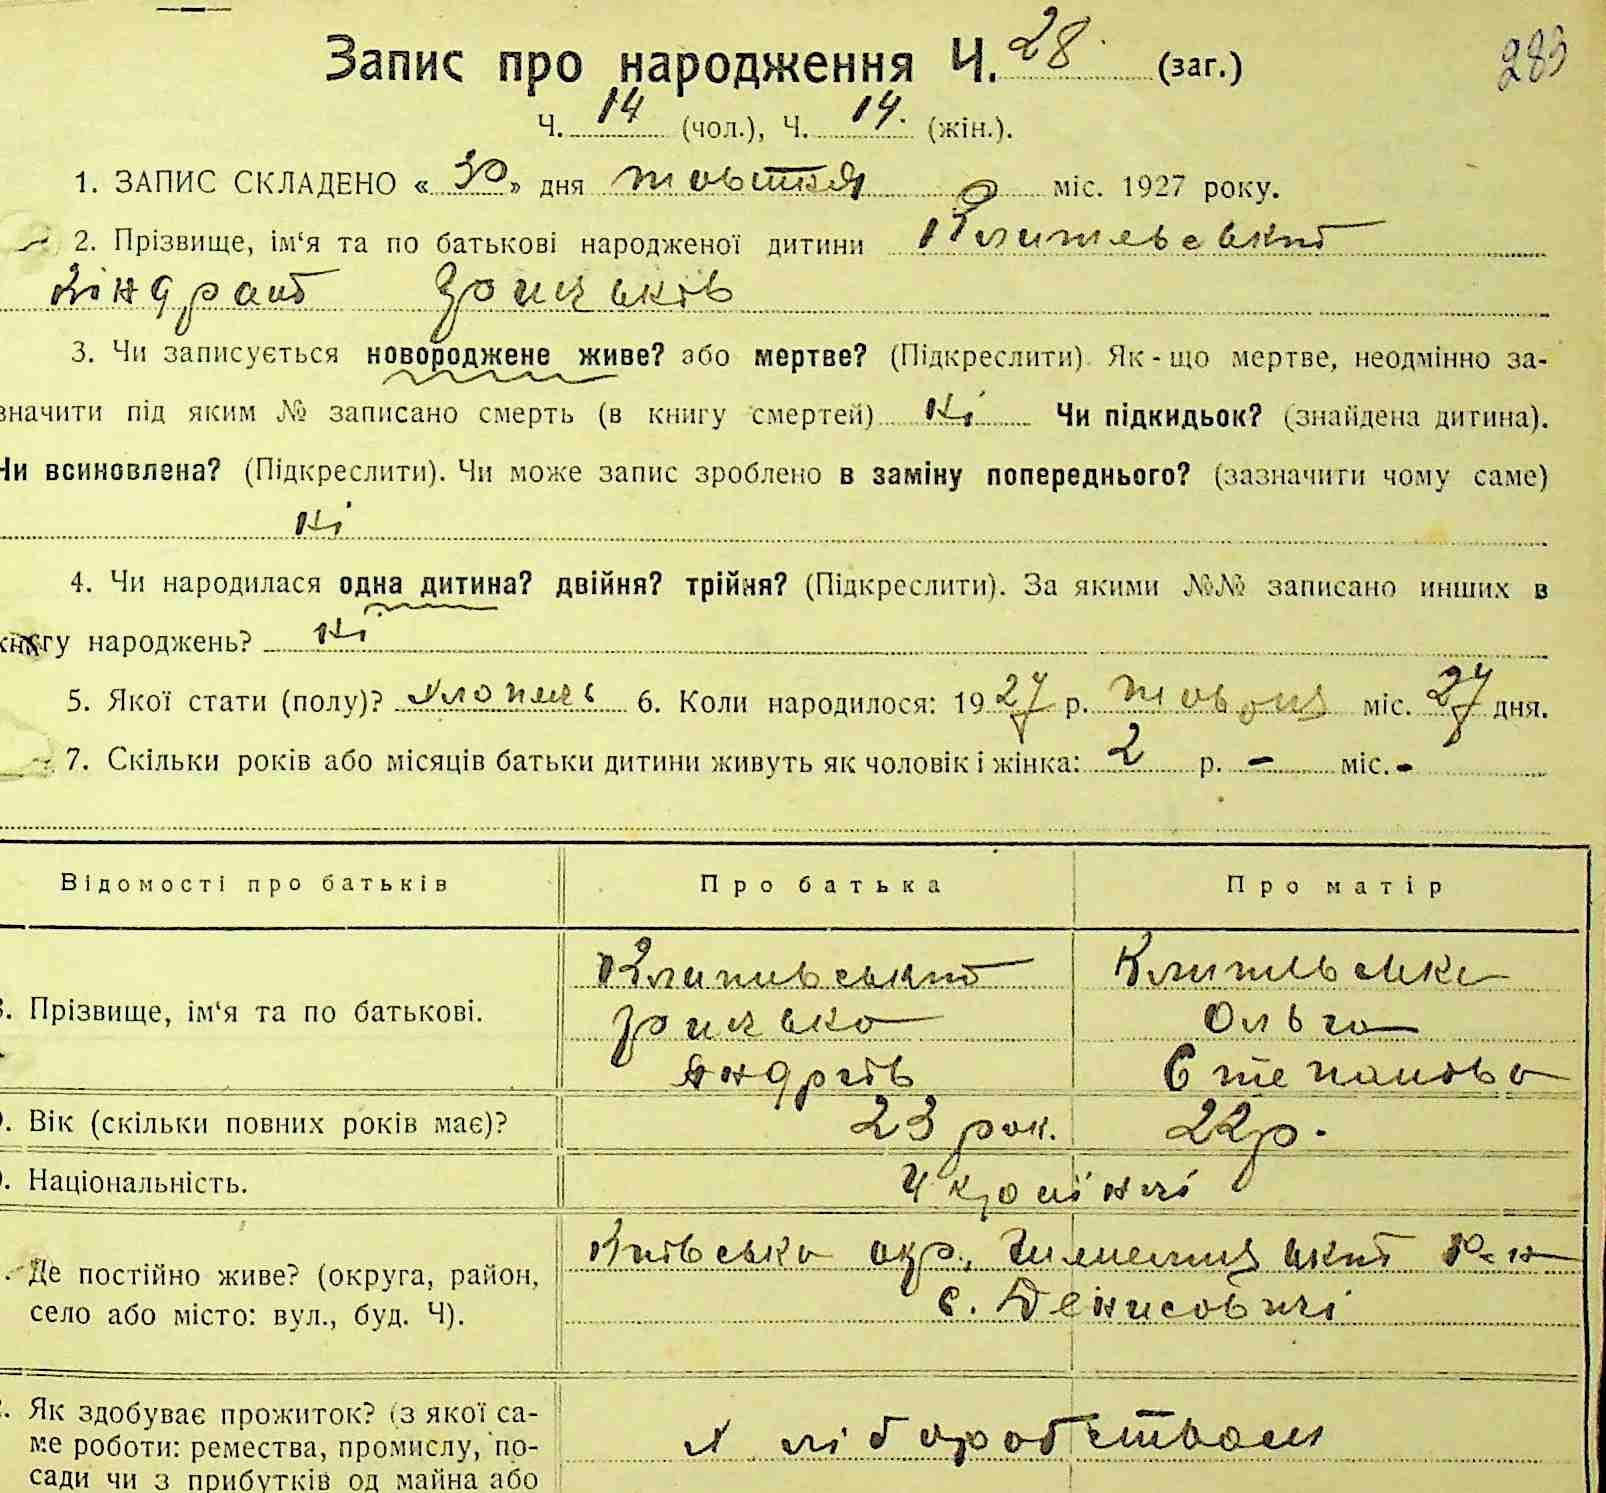 Запис про народження Ч. 28 (заг.)
283
Ч. 14 (чол.), Ч. 14. (жін.).
1. ЗАПИС СКЛАДЕНО « 30 » дня жовтня міс. 1927 року.
2. Прізвище, ім‘я та по батькові народженої дитини
Грицьків
3. Чи записується новороджене живе? або мертве? (Підкреслити). Як-що мертве, неодмінно за-
значити під яким № записано смерть (в книгу смертей) Ні Чи підкидьок? (знайдена дитина).
Чи всиновлена? (Підкреслити). Чи може запис зроблено в заміну попереднього? (зазначити чому саме)
Ні
4. Чи народилася одна дитина? двійня? трійня? (Підкреслити). За якими №№ записано инших в
книгу народжень? Ні
5. Якої стати (полу)? хлопець 6. Коли народилося: 1927 р. жовтня міс. 27 дня.
7. Скільки років або місяців батьки дитини живуть як чоловік і жінка: 2 р. - міс. -
Відомості про батьків Про батька Про матір
8. Прізвище, ім‘я та по батькові.
Грицько Ольга
Андріїв Степанова
9. Вік (скільки повних років має)? 23 рок. 22 р.
Національність. Українці
Де постійно живе? (округа, район, Київська окр., р-н
село або місто: вул., буд. Ч). с. Денисовичі
Як здобуває прожиток? (з якої са- хліборобством
ме роботи: ремества, промислу, по-
сади чи з прибутків од майна або